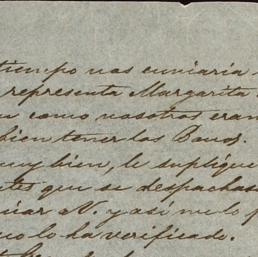 tiempo nos enviaria
representa Margarita
como nosotros eran
bien tener los Bonos.
muy bien, le supliqué
que se despachase
N. y así me lo
lo ha verificado.